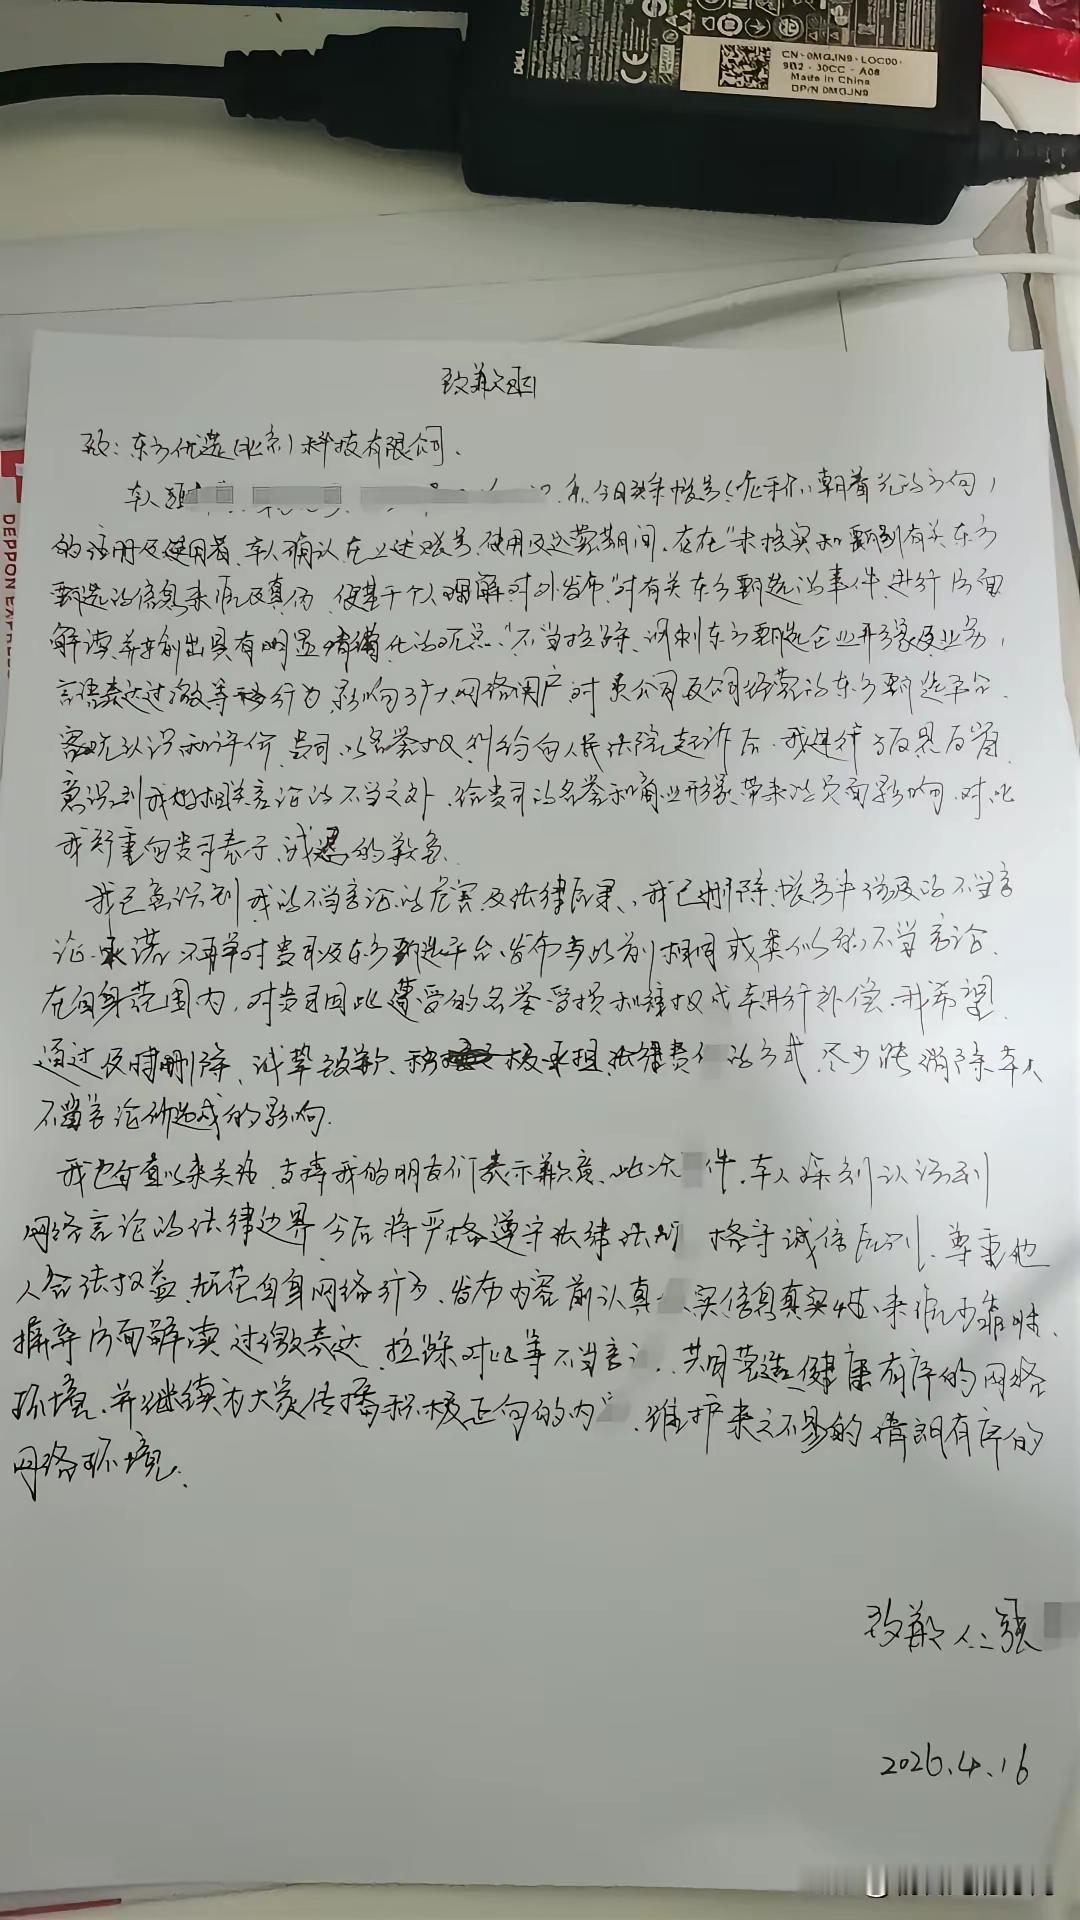 DELL
CN-0MGJN9-LOC00-
9B2-30CC-A08
Made in China
DP/N 0MGJN9
DEPPON EXPRESS
致歉函
致：东方优选（北京）科技有限公司.
本人 系今日头条账号（昵称：朝着光的方向）
的注册及使用者，本人确认在上述账号使用及运营期间，存在“未核实和甄别有关东方
甄选的信息来源及真伪，便基于个人理解对外发布”对有关东方甄选的事件进行片面
解读并输出具有明显情绪化的观点“不当拉踩、讽刺东方甄选企业形象及业务，
言语表达过激等行为，影响了广大网络用户对贵公司及公司经营的东方甄选平台
客观认识和评价，贵司以名誉权纠纷向人民法院起诉后，我进行了反思反省，
意识到我相关言论的不当之处，给贵司的名誉和商业形象带来的负面影响，对此
我郑重向贵司表示诚恳的歉意.
我已意识到我的不当言论的危害及法律后果，我已删除账号中涉及的不当言
论，承诺不再对贵司及东方甄选平台发布与此前相同或类似的不当言论.
在自身范围内，对贵司因此遭受的名誉受损和维权成本进行补偿，我希望
通过及时删除、诚挚致歉、积极承担法律责 的方式，尽力消除本人
不当言论所造成的影响.
我也向一直以来关注、支持我的朋友们表示歉意，此次 件，本人深刻认识到
网络言论的法律边界，今后将严格遵守法律法 格守诚信原则，尊重他
人合法权益，规范自身网络行为，发布内容前认真 实信息真实性、来源可靠性，
摒弃片面解读、过激表达、拉踩对比等不当言 ，共同营造健康有序的网络
环境，并继续为大众传播积极正向的内 ，维护来之不易的清朗有序的
网络环境.
致歉人：张
2026.4.16